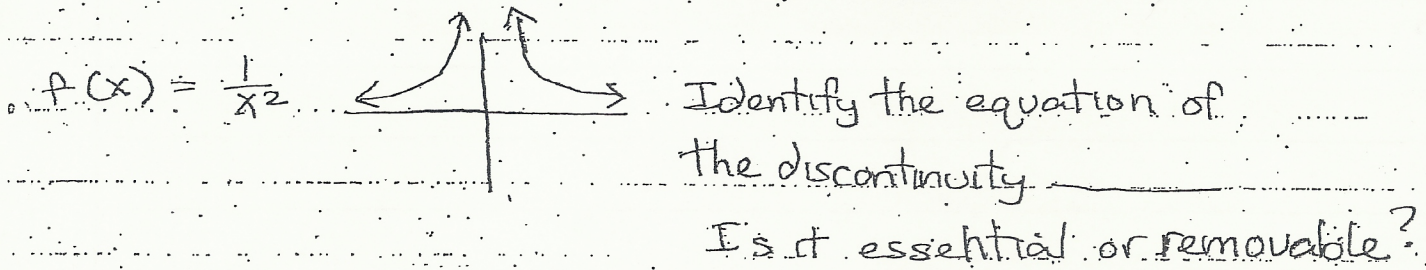 f(x) = 1/x²
Identify the equation of
the discontinuity ________
Is it essential or removable?